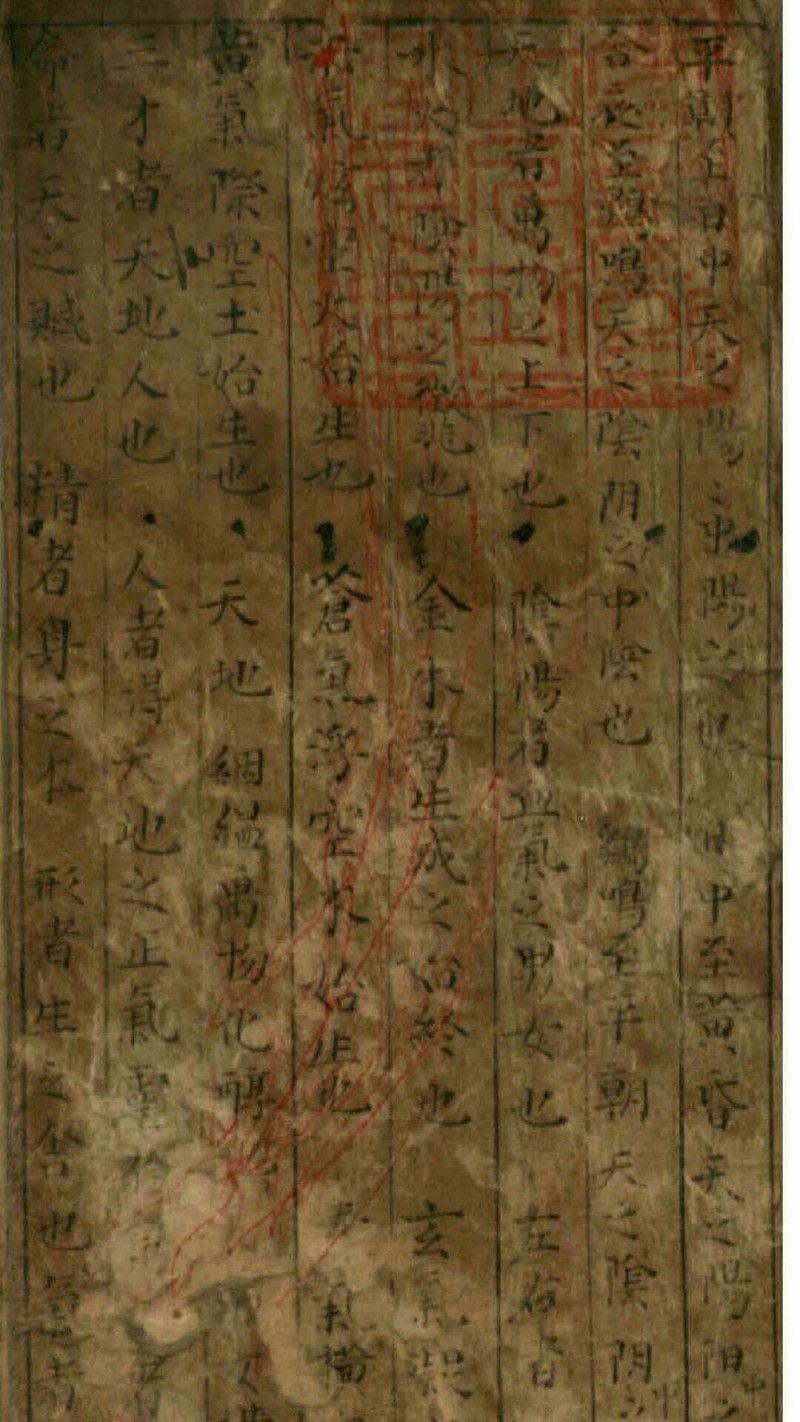 平朝至日中天之陽〻中陽〻也 日中至黃昏天之陽阳
合夜至鷄鳴天之陰阴之中陰也 鷄鳴至平朝天之陰阴
天地者萬物之上下也 陰陽者血氣之男女也 左右者
水火者陰陽之徵兆也 金木者生成之始終也 玄氣凝
氣炫空火始生也 蒼氣浮空木始生也 氣橫
黃氣際空土始生也 天地絪緼萬物化醇
三才者天地人也 人者得天地之正氣靈於 者
命者天之賦也 精者身之本 形者生之舍也氣者